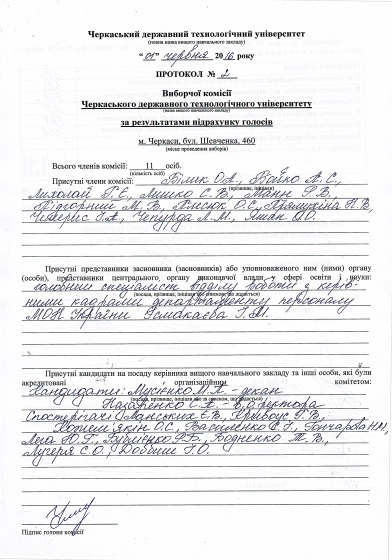 Черкаський державний технологічний університет
(повна назва вищого навчального закладу)
"01" червня 2016 року
ПРОТОКОЛ № 2
Виборчої комісії
Черкаського державного технологічного університету
(назва вищого навчального закладу)
за результатами підрахунку голосів
м. Черкаси, бул. Шевченка, 460
(місце проведення виборів)
Всього членів комісії: 11 осіб.
(кількість осіб)
Присутні члени комісії: Білик О.А., Бойко А.С.,
(прізвище, ініціали)
Г.Е., Мишко С.В., Манн Р.В.,
Підгорний М.В., Плисюк О.С., Прямухіна Н.В.,
І.А., Чепурда Л.М., О.О.
Присутні представники засновника (засновників) або уповноваженого ним (ними) органу
(особи), представники центрального органу виконавчої влади у сфері освіти і науки:
головний спеціаліст відділу роботи з керів-
(посада, прізвище, ініціали або вчинено, що відсутні)
ними кадрами департаменту персоналу
МОН України Усмакаєва І.М.
Присутні кандидати на посаду керівника вищого навчального закладу та інші особи, які були
акредитовані організаційним комітетом:
Кандидати: Мусієнко М.П. - декан
Назаренко С.А. - директора
Спостерігачі: Ланських Є.В., Кривоус Г.В.,
О.С., Василенко Гончарова Н.М.,
Лега Ю.Г., Бодненко Т.В.,
Лучеря С.О., Г.О.
Підпис голови комісії